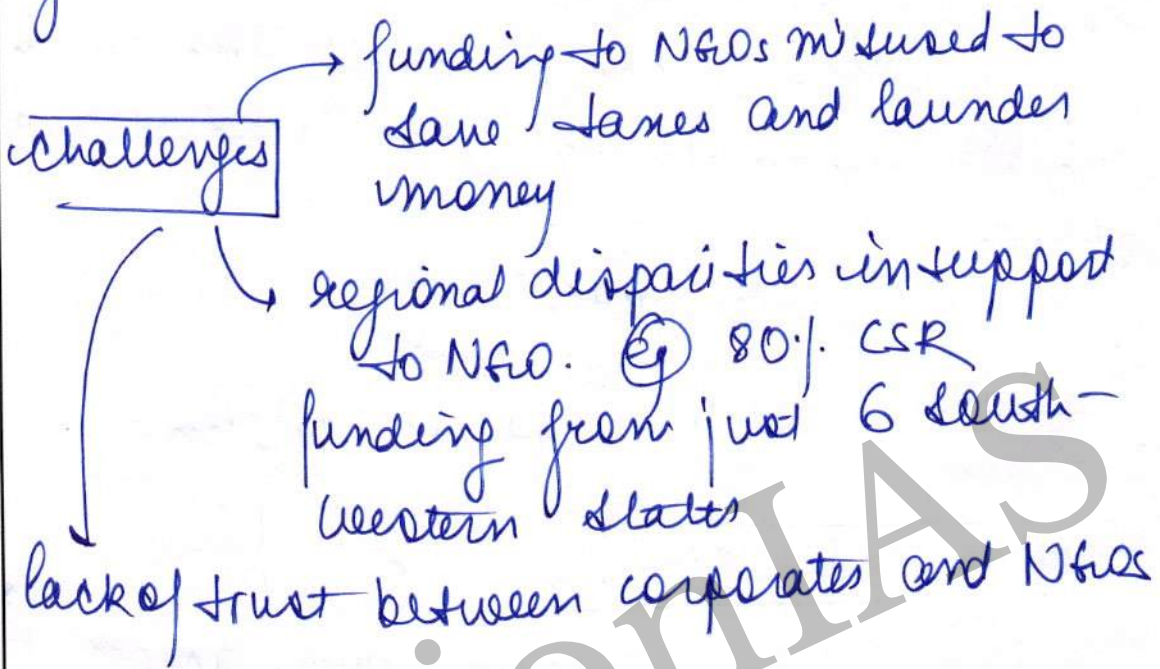 funding to NGOs misused to
save taxes and launder
money
challenges
regional disparities in support
to NGO. eg 80%. CSR
funding from just 6 south-
western states
lack of trust between corporates and NGOs
ionIAS